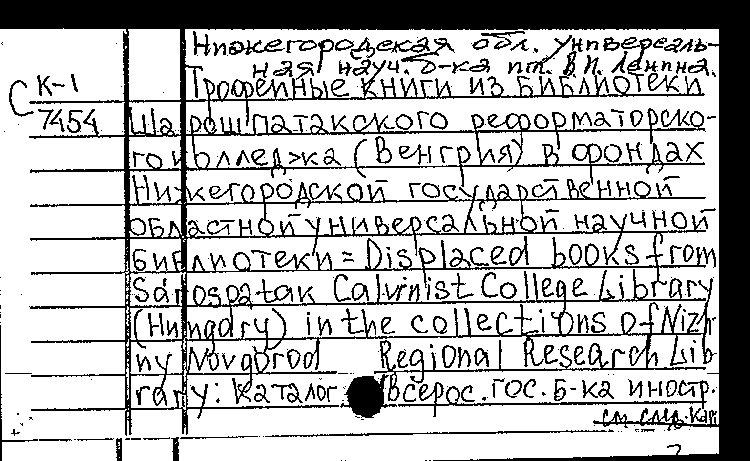 Нижегородская обл. универсаль-
ная науч. б-ка им. В.И. Ленина.
С К-1
7454
Трофейные книги из библиотеки
Шарошпатакского реформаторско-
го колледжа (Венгрия) в фондах
Нижегородской государственной
областной универсальной научной
библиотеки = Displaced books from
Sárospatak Calvinist College Library
(Hungary) in the collections of Nizh
ny Novgorod Regional Research Lib
rary: каталог / Всерос. гос. б-ка иностр.
см. след. карт